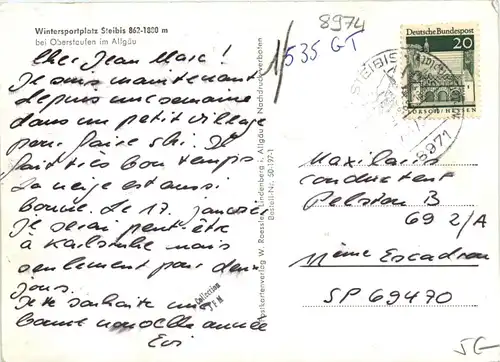 Wintersportplatz Steibis 862-1800 m
bei Oberstaufen im Allgäu
Cher Jean Marc!
Je suis maintenant
depuis une semaine
dans un petit village
pour faire ski. Il
fait très bon temps
La neige est aussi
bonne. Le 17. janvier
Je serai peut-être
à Karlsruhe mais
seulement pour deux
jours.
Je te souhaite une
bonne nouvelle année
Evi
Collection
JFM
Postkartenverlag W. Roessler, Lindenberg i. Allgäu
Nachdruck verboten
Bestell-Nr. 50-197-1
8974
535 GT
Deutsche Bundespost
20
LORSCH/HESSEN
STEIBIS
8971
Maxilaiss
conducteur
Peloton B
69 2/A
11ème Escadron
SP 69470
5G